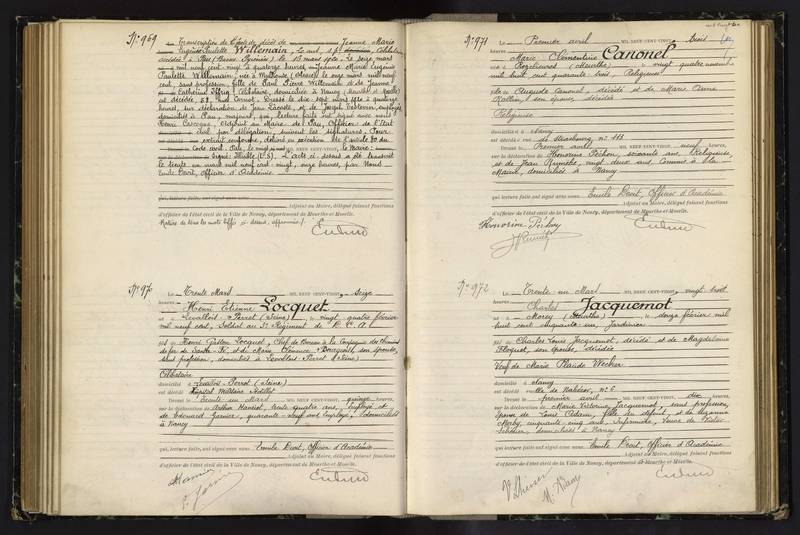 N° 969
Transcription de l'acte de décès de Jeanne Marie
Eugénie Paulette Willemain
décédée à Pau (Basses Pyrénées) le 13 mars 1920. Le seize mars
mil neuf cent vingt à quatorze heures, Jeanne Marie Eugénie
Paulette Willemain, née à Mulhouse (Alsace) le onze mars mil neuf
cent, sans profession, fille de Paul Pierre Willemain et de Jeanne
Catherine Célibataire, domiciliée à Nancy (Meurthe et Moselle)
est décédée, 58, Carnot. Dressé le dix sept mars 1920 à quatorze
heures, sur déclaration de Jean et de Joseph employés,
domiciliés à Pau, majeurs, qui, lecture faite ont signé avec nous
Henri adjoint au Maire de Pau, Officier de l'état
civil par délégation, suivent les signatures. Pour
extrait conforme, délivré en exécution de l'article 80 du
Code civil. Pau, le vingt MIL NEUF CENT-VINGT, le Maire:
Signé: (L.S.) L'acte ci-dessus a été transcrit
le trente un mars mil neuf cent vingt, onze heures, par Nous
Emile Droit, Officier d'Académie
qui, lecture faite, ont signé avec nous
Adjoint au Maire, délégué faisant fonctions
d'officier de l'état civil de la Ville de Nancy, département de Meurthe-et-Moselle.
N° 970
Le Trente Mars MIL NEUF CENT-VINGT, seize
heures
Henri Etienne Locquet
né à Levallois Perret (Seine), le vingt quatre février
mil neuf cent, Soldat au Régiment de
fils de Henri Gaston Locquet, Chef de Bureau à la Compagnie des Chemins
de fer de et de Marie Clémence Bourgeois, son épouse,
sans profession, domiciliés à Levallois-Perret (Seine)
Célibataire
domicilié à Levallois Perret (Seine)
est décédé Hopital Militaire Sédillot
Dressé le Trente un Mars MIL NEUF CENT-VINGT, quinze heures,
sur la déclaration de Arthur trente quatre ans, Employé et
de Edouard Garnier, quarante neuf ans Employé, domiciliés
à Nancy
qui, lecture faite, ont signé avec nous Emile Droit, Officier d'Académie
Adjoint au Maire, délégué faisant fonctions
d'officier de l'état civil de la Ville de Nancy, département de Meurthe-et-Moselle.
N° 971
Le Premier avril MIL NEUF CENT-VINGT, trois
heures
Marie Clémentine Canonel
née à Rozelieures (Meurthe), le vingt quatre novembre
mil huit cent quarante trois, Religieuse
fille de Auguste Canonel, décédé et de Marie Anne
son épouse, décédée
Religieuse
domiciliée à Nancy
est décédée rue de Strasbourg, n° 113
Dressé le Premier avril MIL NEUF CENT-VINGT, neuf heures,
sur la déclaration de Honorine soixante ans, Religieuse,
et de Jean vingt deux ans, Commis à la
Mairie, domiciliés à Nancy
qui, lecture faite, ont signé avec nous Emile Droit, Officier d'Académie
Adjoint au Maire, délégué faisant fonctions
d'officier de l'état civil de la Ville de Nancy, département de Meurthe-et-Moselle.
Honorine
N° 972
Le Trente un Mars MIL NEUF CENT-VINGT, vingt trois
heures
Charles Jacquemot
né à Morey (Meurthe), le douze février mil
huit cent cinquante un, Jardinier
fils de Charles Louis Jacquemot, décédé et de Magdeleine
son épouse, décédée
Veuf de Marie Claude Wecker
domicilié à Nancy
est décédé rue de Nabécor, n° 6
Dressé le premier avril MIL NEUF CENT-VINGT, dix heures,
sur la déclaration de Marie Victorine Jacquemot, sans profession,
épouse de Louis Adam, fille du défunt, et de Suzanne
cinquante cinq ans, Infirmière, Veuve de
domiciliés à Nancy
qui, lecture faite, ont signé avec nous Emile Droit, Officier d'Académie
Adjoint au Maire, délégué faisant fonctions
d'officier de l'état civil de la Ville de Nancy, département de Meurthe-et-Moselle.